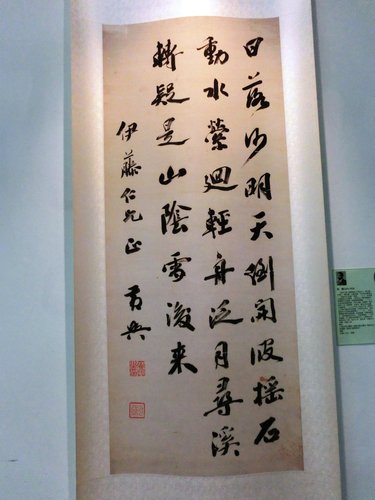 日落沙明天倒開波搖石
動水縈迴輕舟泛月尋溪
轉疑是山陰雪後来
伊藤仁兄正
黃興